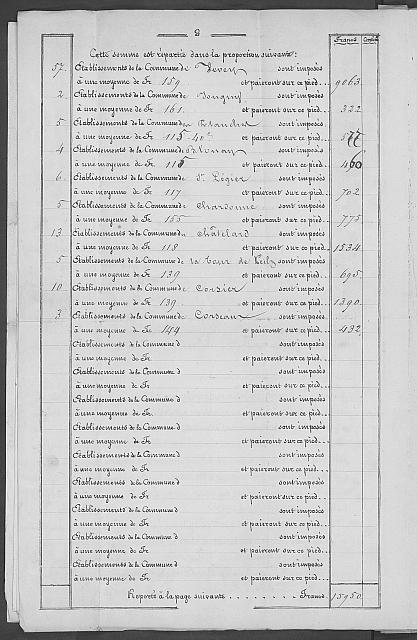 2
Francs Cent.
Cette somme est répartie dans la proportion suivante:
57 Établissements de la Commune de Vevey sont imposés
à une moyenne de Fr 159 et paieront sur ce pied... 9063.
2 Établissements de la Commune de Jongny sont imposés
à une moyenne de Fr 161 et paieront sur ce pied... 322
5 Établissements de la Commune de Blonay sont imposés
à une moyenne de Fr 115 40 et paieront sur ce pied... 577
4 Établissements de la Commune de sont imposés
à une moyenne de Fr 115 et paieront sur ce pied... 460
6 Établissements de la Commune de St Légier sont imposés
à une moyenne de Fr 117 et paieront sur ce pied... 702
5 Établissements de la Commune de Chardonne sont imposés
à une moyenne de Fr 155 et paieront sur ce pied... 775
13 Établissements de la Commune du Châtelard sont imposés
à une moyenne de Fr 118 et paieront sur ce pied... 1534
5 Établissements de la Commune de la Tour de Peilz sont imposés
à une moyenne de Fr 139 et paieront sur ce pied... 695
10 Établissements de la Commune de Corsier sont imposés
à une moyenne de Fr 139 et paieront sur ce pied... 1390
3 Établissements de la Commune de Corseaux sont imposés
à une moyenne de Fr 144 et paieront sur ce pied... 432
Établissements de la Commune d sont imposés
à une moyenne de Fr et paieront sur ce pied...
Établissements de la Commune d sont imposés
à une moyenne de Fr et paieront sur ce pied...
Établissements de la Commune d sont imposés
à une moyenne de Fr et paieront sur ce pied...
Établissements de la Commune d sont imposés
à une moyenne de Fr et paieront sur ce pied...
Établissements de la Commune d sont imposés
à une moyenne de Fr et paieront sur ce pied...
Établissements de la Commune d sont imposés
à une moyenne de Fr et paieront sur ce pied...
Établissements de la Commune d sont imposés
à une moyenne de Fr et paieront sur ce pied...
Établissements de la Commune d sont imposés
à une moyenne de Fr et paieront sur ce pied...
Établissements de la Commune d sont imposés
à une moyenne de Fr et paieront sur ce pied...
Reporté à la page suivante . . . . . . . . Francs 15950